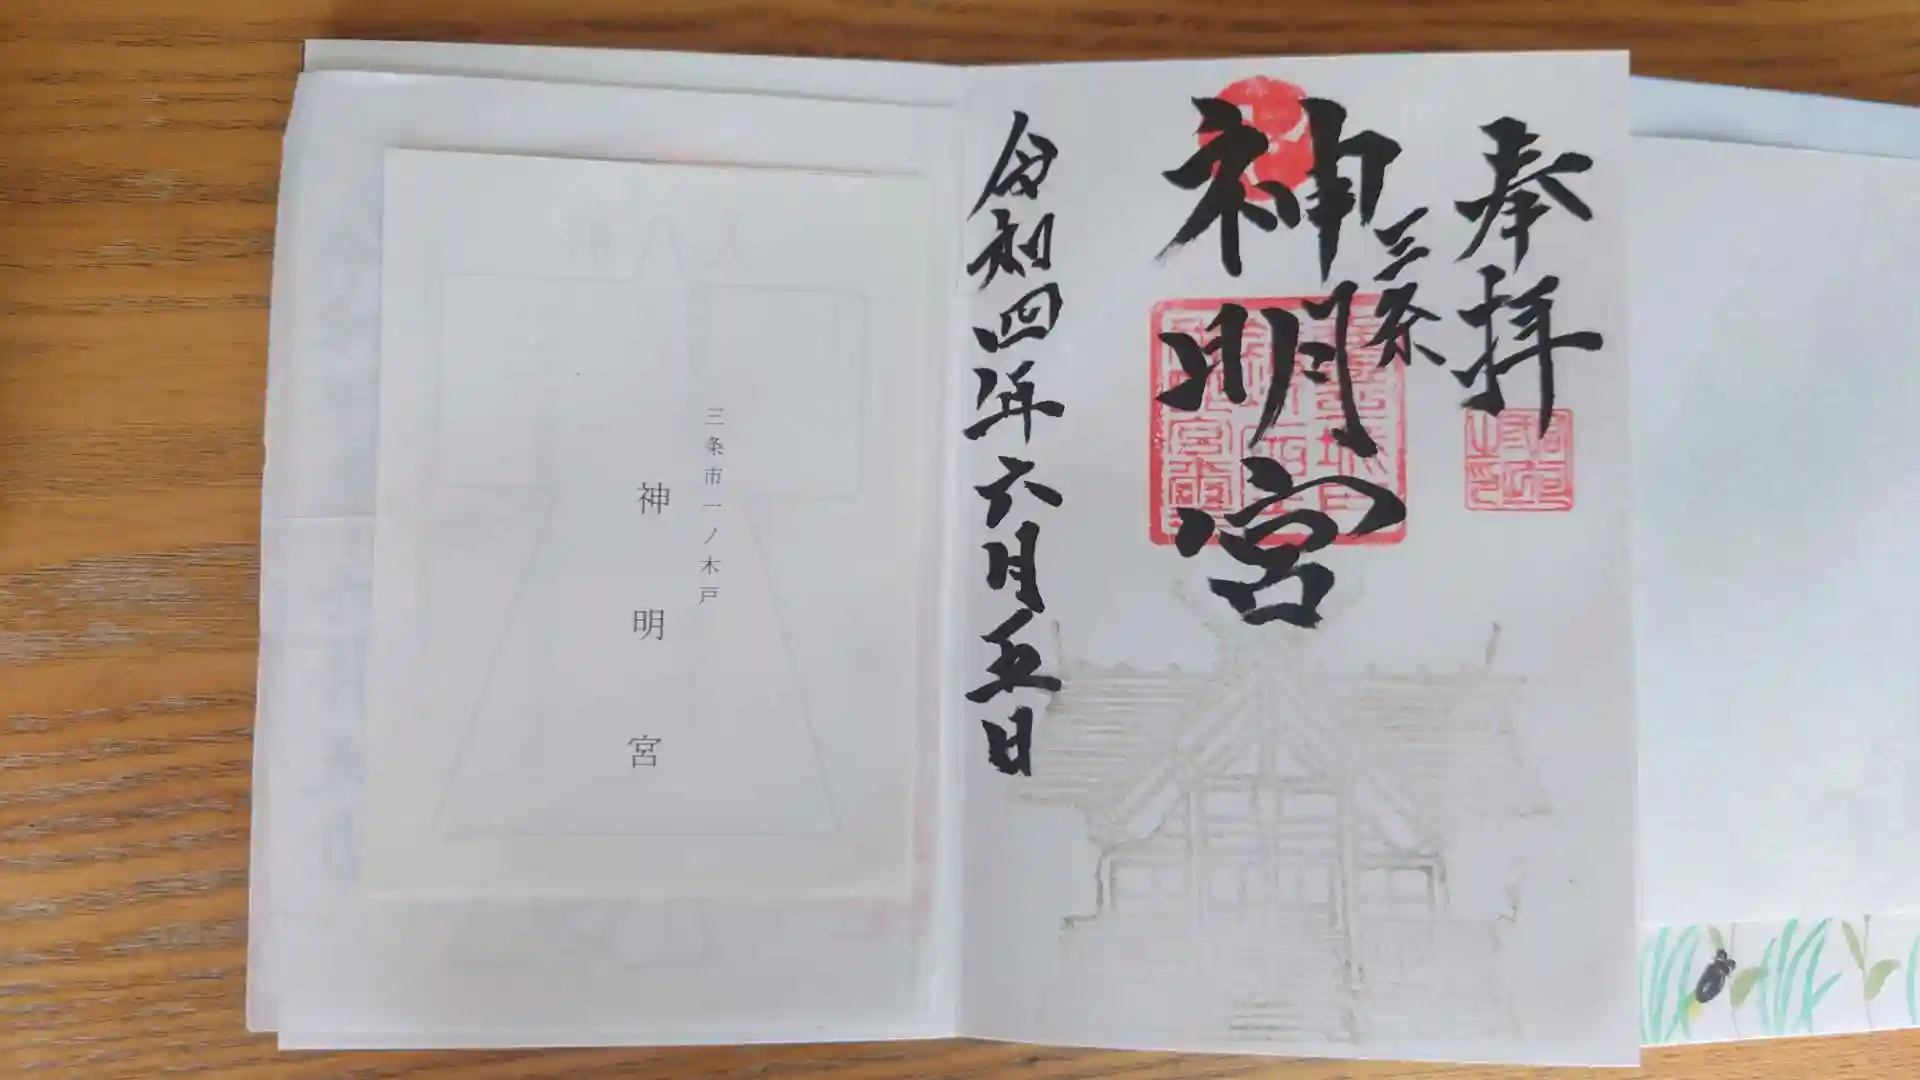 奉拝
三条
神明宮
令和四年六月五日
三条市一ノ木戸
神明宮